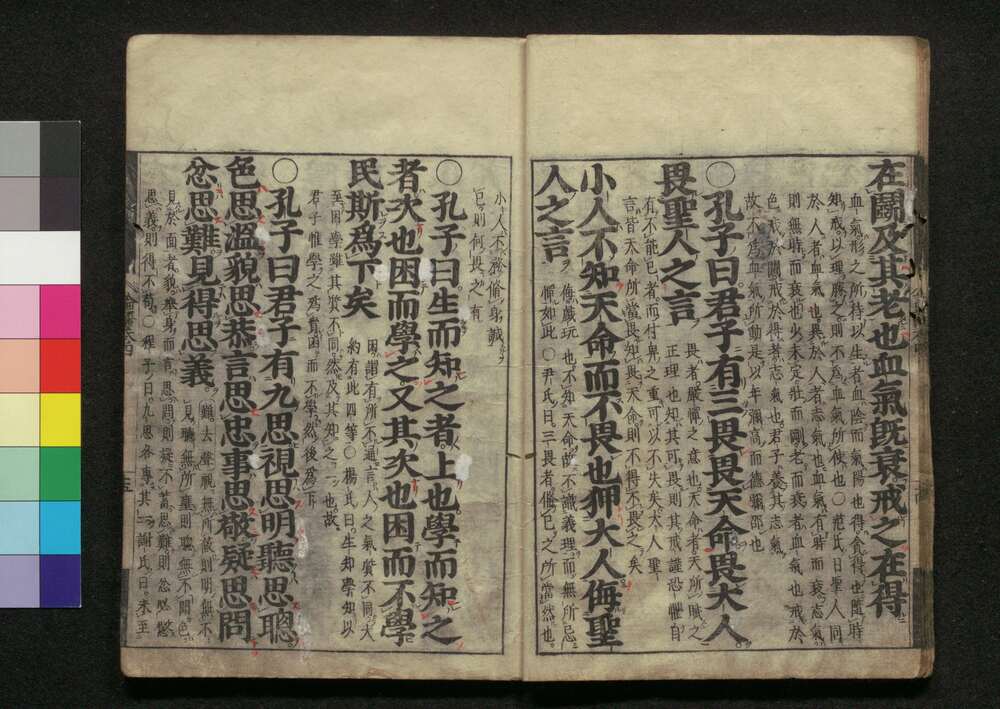 在鬭及其老也血氣既衰戒之在得
血氣形之所待以生者血陰而氣陽也得貪得也隨時
知戒以理勝之則不爲血氣所使也○范氏曰聖人同
於人者血氣也異於人者志氣也血氣有時而衰志氣
則無時而衰也少未定壯而剛老而衰者血氣也戒於
色戒於鬭戒於得者志氣也君子養其志氣
故不爲血氣所動是以年彌高而德彌邵也
○孔子曰君子有三畏畏天命畏大人
畏聖人之言
畏者嚴憚之意也天命者天所賦之
正理也知其可畏則其戒謹恐懼自
有不能已者而付畀之重可以不失矣大人聖
言皆天命所當畏知畏天命則不得不畏之矣
小人不知天命而不畏也狎大人侮聖
人之言
侮戲玩也不知天命故不識義理而無所忌
憚如此○尹氏曰三畏者脩己之所當然也
小人不務脩身誠
己則何畏之有
○孔子曰生而知之者上也學而知之
者次也困而學之又其次也困而不學
民斯爲下矣
困謂有所不通言人之氣質不同大
約有此四等○楊氏曰生知學知以
至困學雖其質不同然及其知之一也故
君子惟學之爲貴困而不學然後爲下
○孔子曰君子有九思視思明聽思聰
色思溫貌思恭言思忠事思敬疑思問
忿思難見得思義
難去聲視無所蔽則明無不
見聽無所壅則聰無不聞色
見於面者貌舉身而言思問則疑不蓄思難則忿必懲
思義則得不苟○程子曰九思各專其一謝氏曰未至